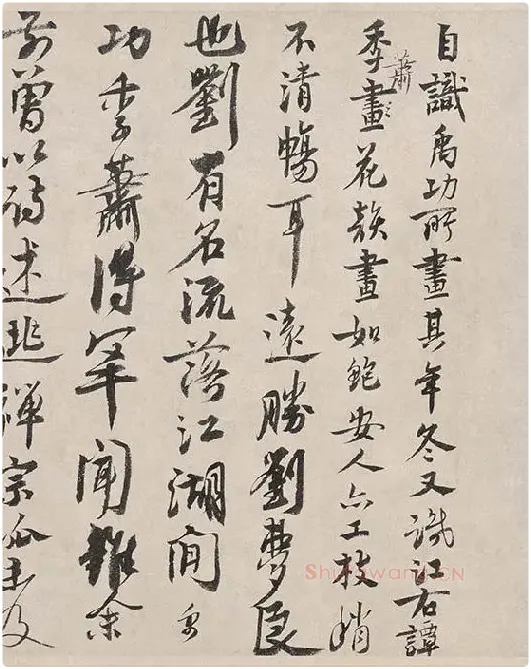 自識禹功所畫其年冬又識江右譚
季蕭畫花畫如鮑安人亦工枝梢
不清暢耳遠勝劉夢良
也劉有名流落江湖間禹
功季蕭得罕聞雖余
前曾以詩述逃禪宗